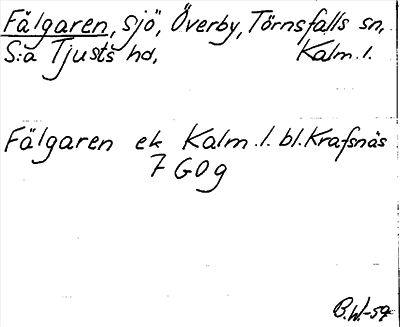 Fälgaren, sjö, Överby, Törnsfalls sn,
S:a Tjusts hd, Kalm. l.
Fälgaren ek Kalm. l. bl. Krafsnäs
7 G0g
B.W.-59